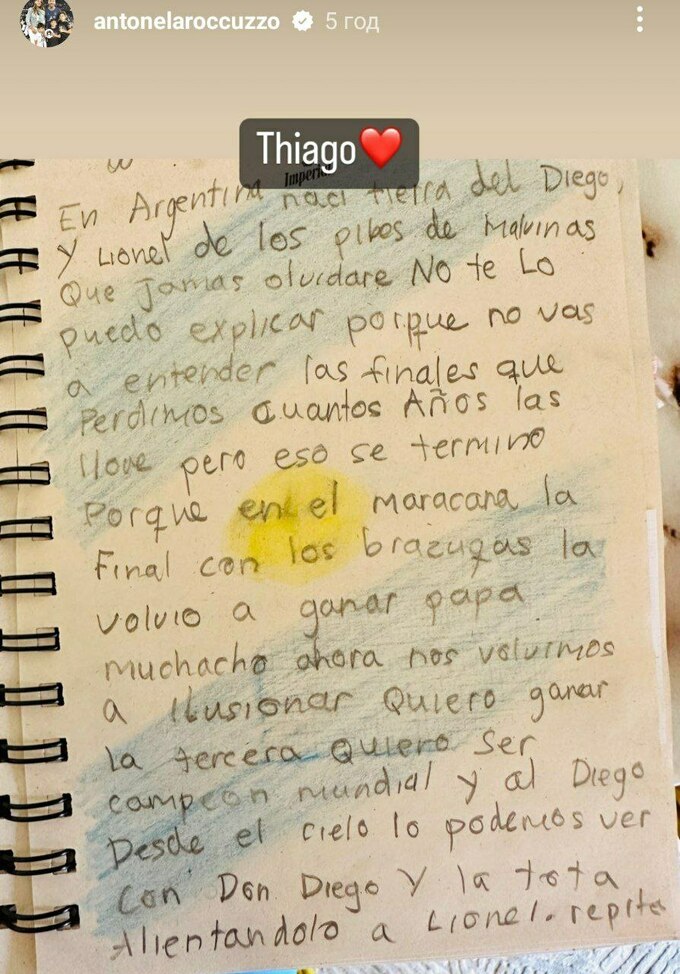 antonelaroccuzzo 5 год
Thiago❤️
Imperi
En Argentina naci tierra del Diego,
Y Lionel de los pibes de Malvinas
Que jamas olvidare NO te Lo
puedo explicar porque no vas
a entender las finales que
Perdimos cuantos Años las
llore pero eso se termino
Porque en el maracana la
Final con los brazugas la
volvio a ganar papa
muchacho ahora nos volvimos
a Ilusionar Quiero ganar
la tercera Quiero Ser
campeon mundial y al Diego
Desde el cielo lo podemos ver
con Don Diego Y la tota
Alientandolo a Lionel. repite